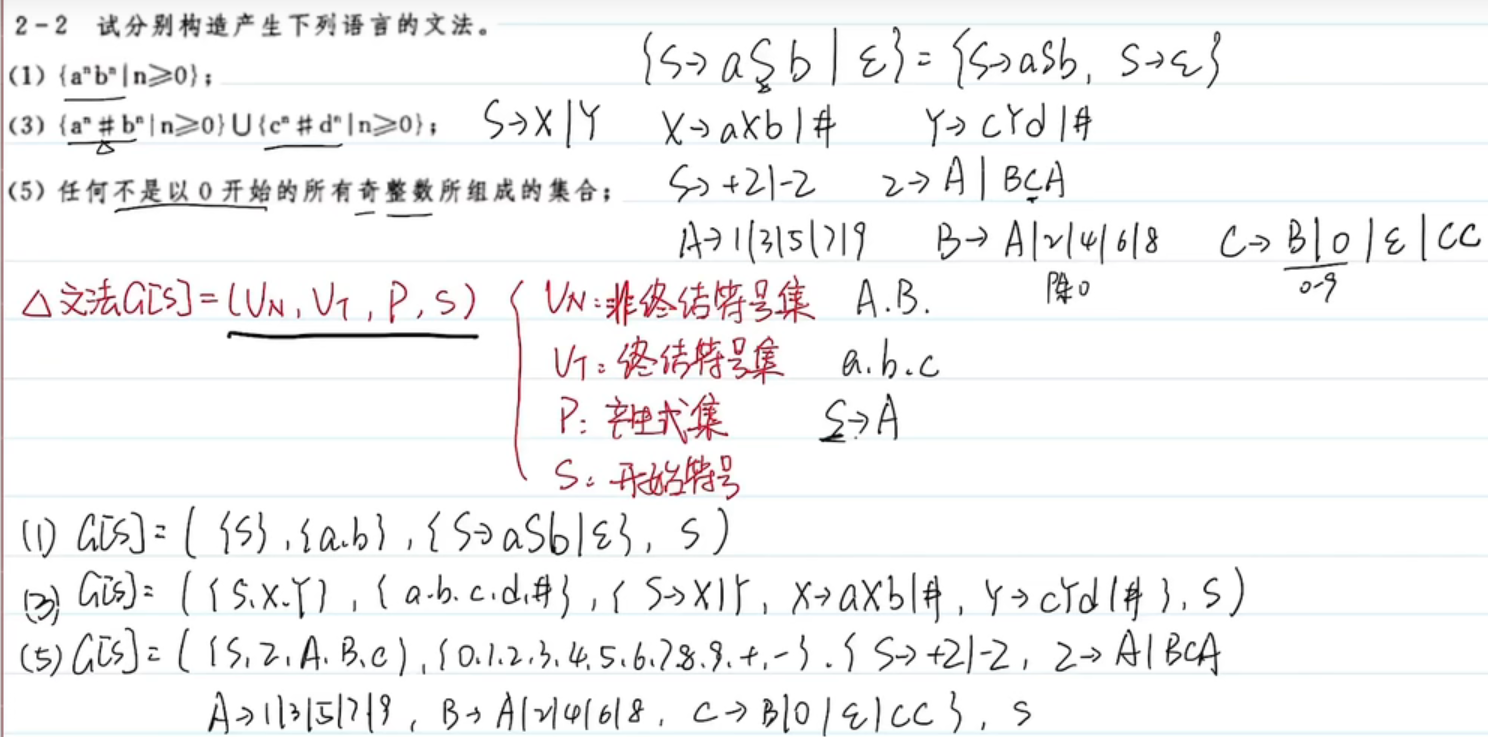 2-2 试分别构造产生下列语言的文法。
{S→aSb|ε}={S→aSb, S→ε}
(1) {aⁿbⁿ|n≥0};
(3) {aⁿ#bⁿ|n≥0}∪{cⁿ#dⁿ|n≥0}; S→X|Y X→aXb|# Y→cYd|#
(5) 任何不是以0开始的所有奇整数所组成的集合; S→+Z|-Z Z→A|BCA
A→1|3|5|7|9 B→A|2|4|6|8 C→B|0|ε|CC
除0 0-9
△文法G[S]=(VN,VT,P,S) { VN:非终结符号集 A.B.
VT:终结符号集 a.b.c
P:产生式集 S→A
S:开始符号
(1) G[S]=({S},{a.b},{S→aSb|ε},S)
(3) G[S]=({S.X.Y},{a.b.c.d.#},{S→X|Y, X→aXb|#, Y→cYd|#},S)
(5) G[S]=({S,Z,A.B.C},{0.1.2.3.4.5.6.7.8.9.+.-}.{S→+Z|-Z, Z→A|BCA
A→1|3|5|7|9, B→A|2|4|6|8, C→B|0|ε|CC}, S